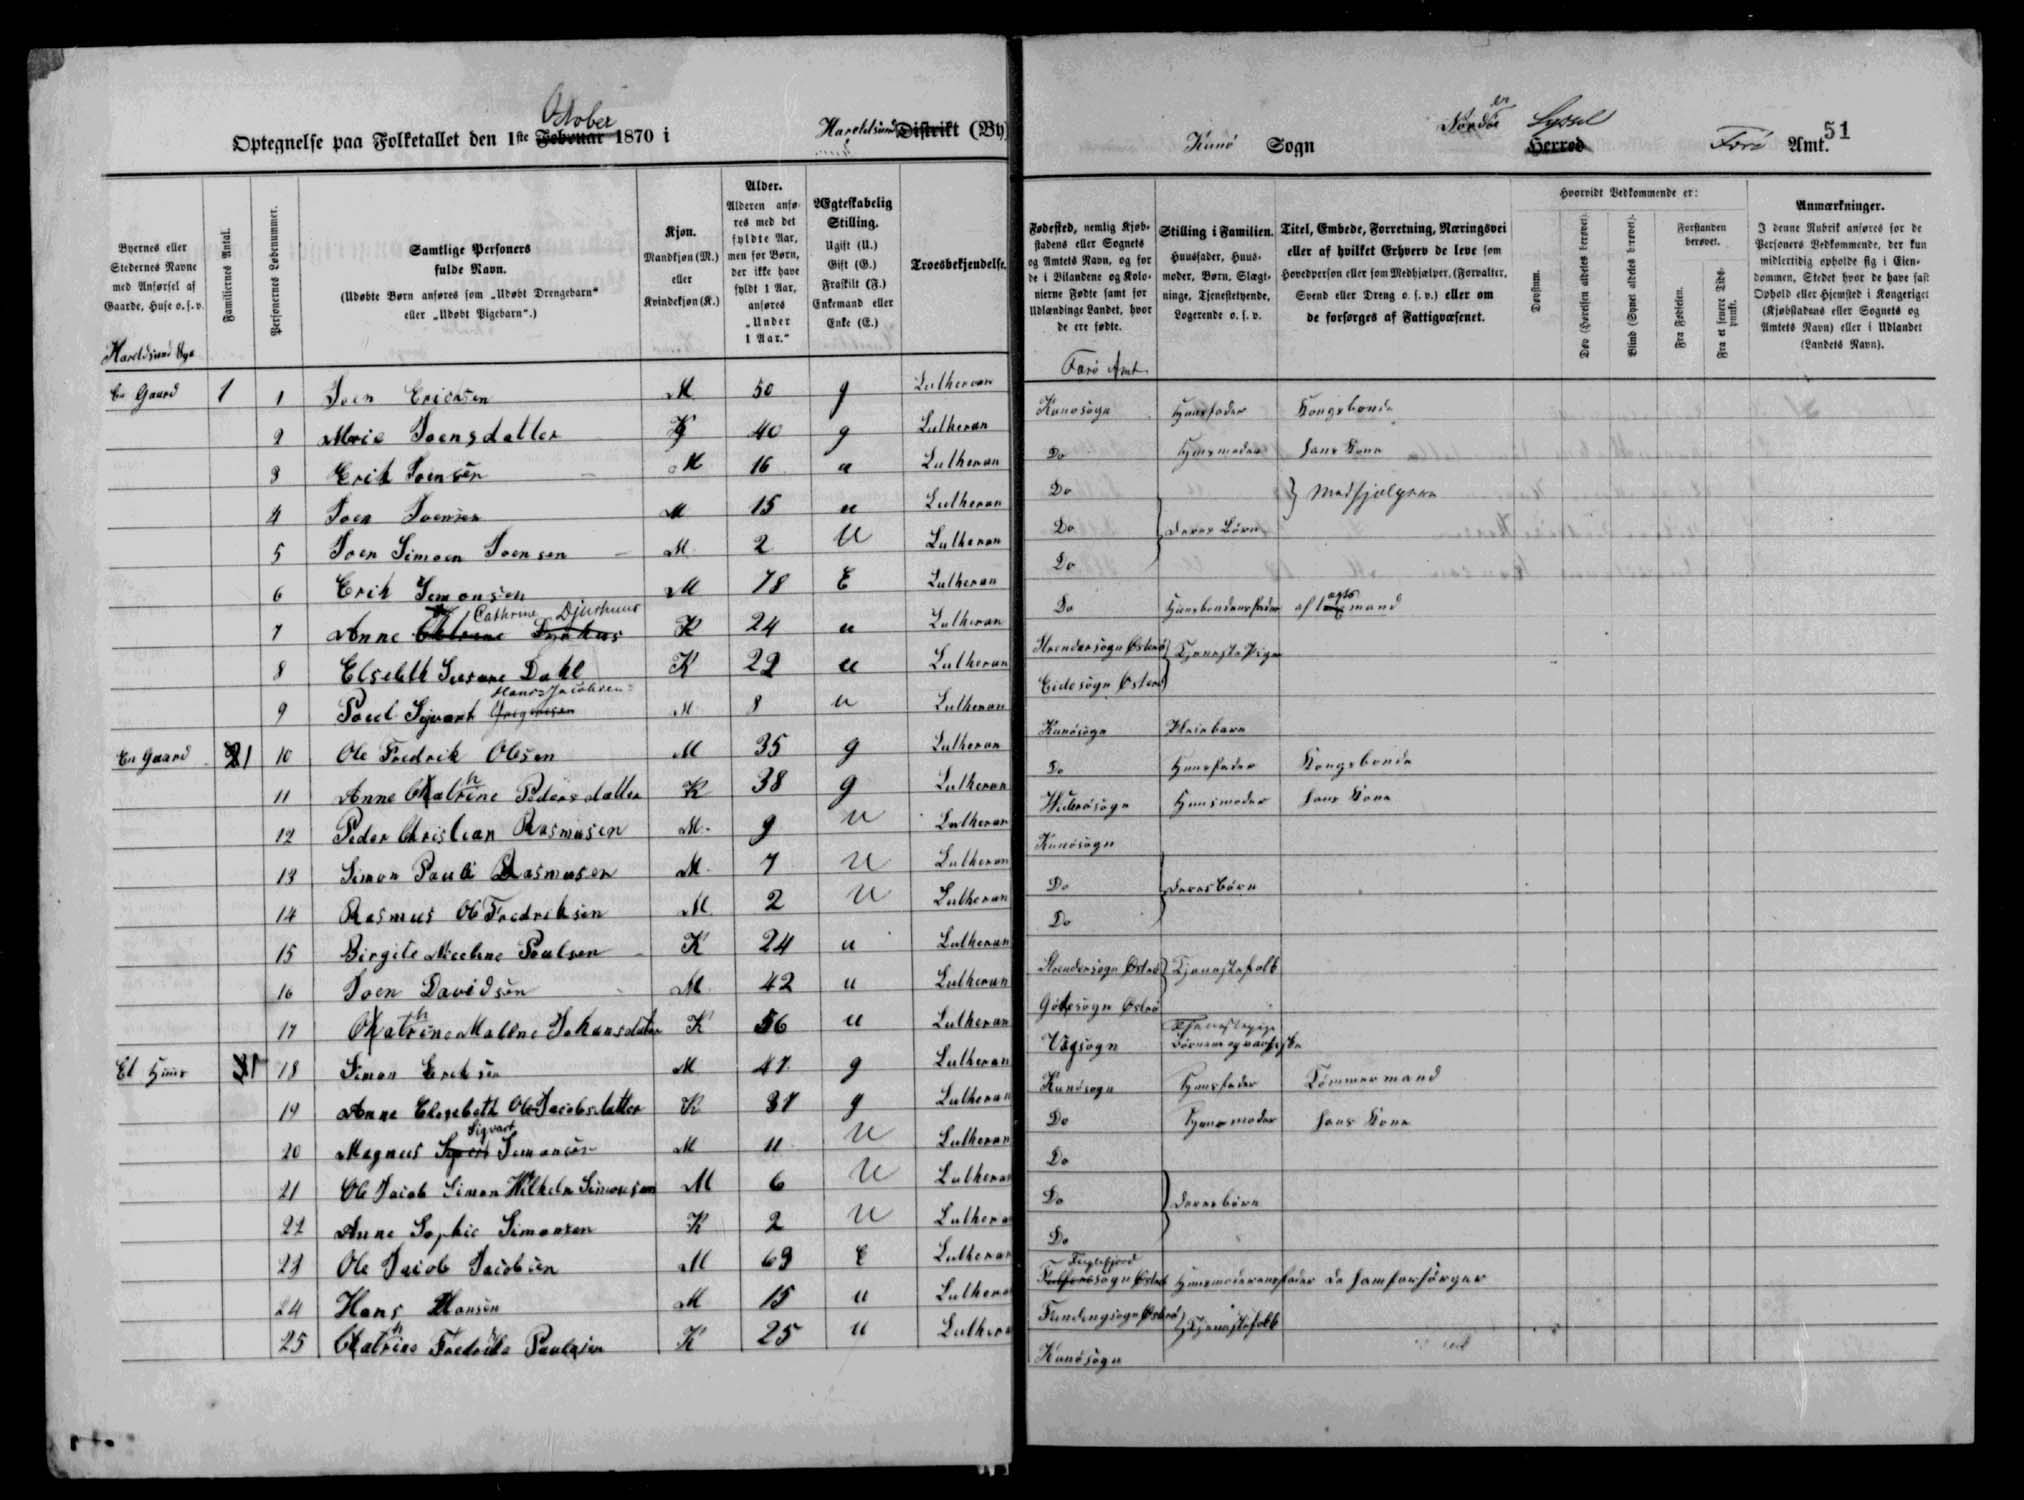 Optegnelse paa Folketallet den 1ste Februar October 1870 i Haroldsund Distrikt (By)
Kunø Sogn Nordøer Herred Syssel Færø Amt. 51
Byernes eller Stedernes Navne med Anførsel af Gaarde, Huse o. s. v.
Familiernes Antal.
Personernes Løbenummer.
Samtlige Personers fulde Navn. (Udøbte Børn anføres som „Udøbt Drengebarn“ eller „Udøbt Pigebarn“.)
Kjøn. Mandkjøn (M.) eller Kvindekjøn (K.)
Alder. Alderen anføres med det fyldte Aar, men for Børn, der ikke have fyldt 1 Aar, anføres „Under 1 Aar.“
Ægteskabelig Stilling. Ugift (U.) Gift (G.) Fraskilt (F.) Enkemand eller Enke (E.)
Troesbekjendelse.
Fødested, nemlig Kjøbstadens eller Sognets og Amtets Navn, og for de i Bilandene og Kolonierne Fødte samt for Udlændinge Landet, hvor de ere fødte.
Stilling i Familien. Huusfader, Huusmoder, Børn, Slægtninge, Tjenestetyende, Logerende o. s. v.
Titel, Embede, Forretning, Næringsvei eller af hvilket Erhverv de leve som Hovedperson eller som Medhjælper, (Forvalter, Svend eller Dreng o. s. v.) eller om de forsørges af Fattigvæsenet.
Hvorvidt Vedkommende er:
Døvstum.
Døv (Hørelsen aldeles berøvet).
Blind (Synet aldeles berøvet).
Forstanden berøvet.
Fra Fødselen.
Fra et senere Tidspunkt.
Anmærkninger. I denne Rubrik anføres for de Personers Vedkommende, der kun midlertidig opholde sig i Eiendommen, Stedet hvor de have fast Ophold eller Hjemsted i Kongeriget (Kjøbstadens eller Sognets og Amtets Navn) eller i Udlandet (Landets Navn).
Haroldsund Byg
Færø Amt
En Gaard 1 1 Joen Ericksen M 50 g Lutheran Kunøsogn Huusfader Kongsbonde
2 Marie Joensdatter K 40 g Lutheran Do Huusmoder hans Kone
3 Erik Joensen M 16 u Lutheran Do } Medhjælpere
4 Joen Joensen M 15 u Lutheran Do deres Børn
5 Joen Simoen Joensen M 2 U Lutheran Do
6 Erik Simonsen M 78 E Lutheran Do Huusbondensfader aftægtsmand
7 Anne Cathrine Djurhuus K 24 u Lutheran Strendersogn Østerø Tjenestepige
8 Elsebeth Susanne Dahl K 22 u Lutheran Eidesogn Østerø
9 Poul Sigvart Gregersen Hans-Jacobsen M 8 u Lutheran Kunøsogn Pleiebarn
En Gaard 1 10 Ole Fredrik Olsen M 35 g Lutheran Do Huusfader Kongsbonde
11 Anne Cathrine Pedersdatter K 38 g Lutheran Huusmoder hans Kone
12 Peder Christian Rasmusen M. 9 U Lutheran Kunøsogn
13 Simon Pauli Rasmusen M. 7 U Lutheran Do deres børn
14 Rasmus Ole Fredriksen M. 2 U Lutheran Do
15 Birgite Nicoline Poulsen K 24 u Lutheran Strendersogn Østerø Tjenestefolk
16 Joen Davidsen M 42 u Lutheran Gøtesogn Østerø
17 Cathrine Malene Johansdatter K 56 u Lutheran Vågsogn
Et Huus 1 18 Simon Eriksen M 47 g Lutheran Kunøsogn Huusfader Tømmermand
19 Anne Elisebeth Ole Jacobsdatter K 37 g Lutheran Do Huusmoder hans Kone
20 Magnus Sigvart Simonsen M 11 U Lutheran Do
21 Ole Jacob Simon Wilhelm Simonsen M 6 U Lutheran Do deres børn
22 Anne Sophie Simonsen K 2 U Lutheran Do
23 Ole Jacob Jacobsen M 69 E Lutheran Fuglefjord sogn Østerø Huusmoderensfader de ham forsørger
24 Hans Hansen M 15 u Lutheran Fundingsogn Østerø Tjenestefolk
25 Cathrine Fredrikke Paulsen K 25 u Lutheran Kunøsogn